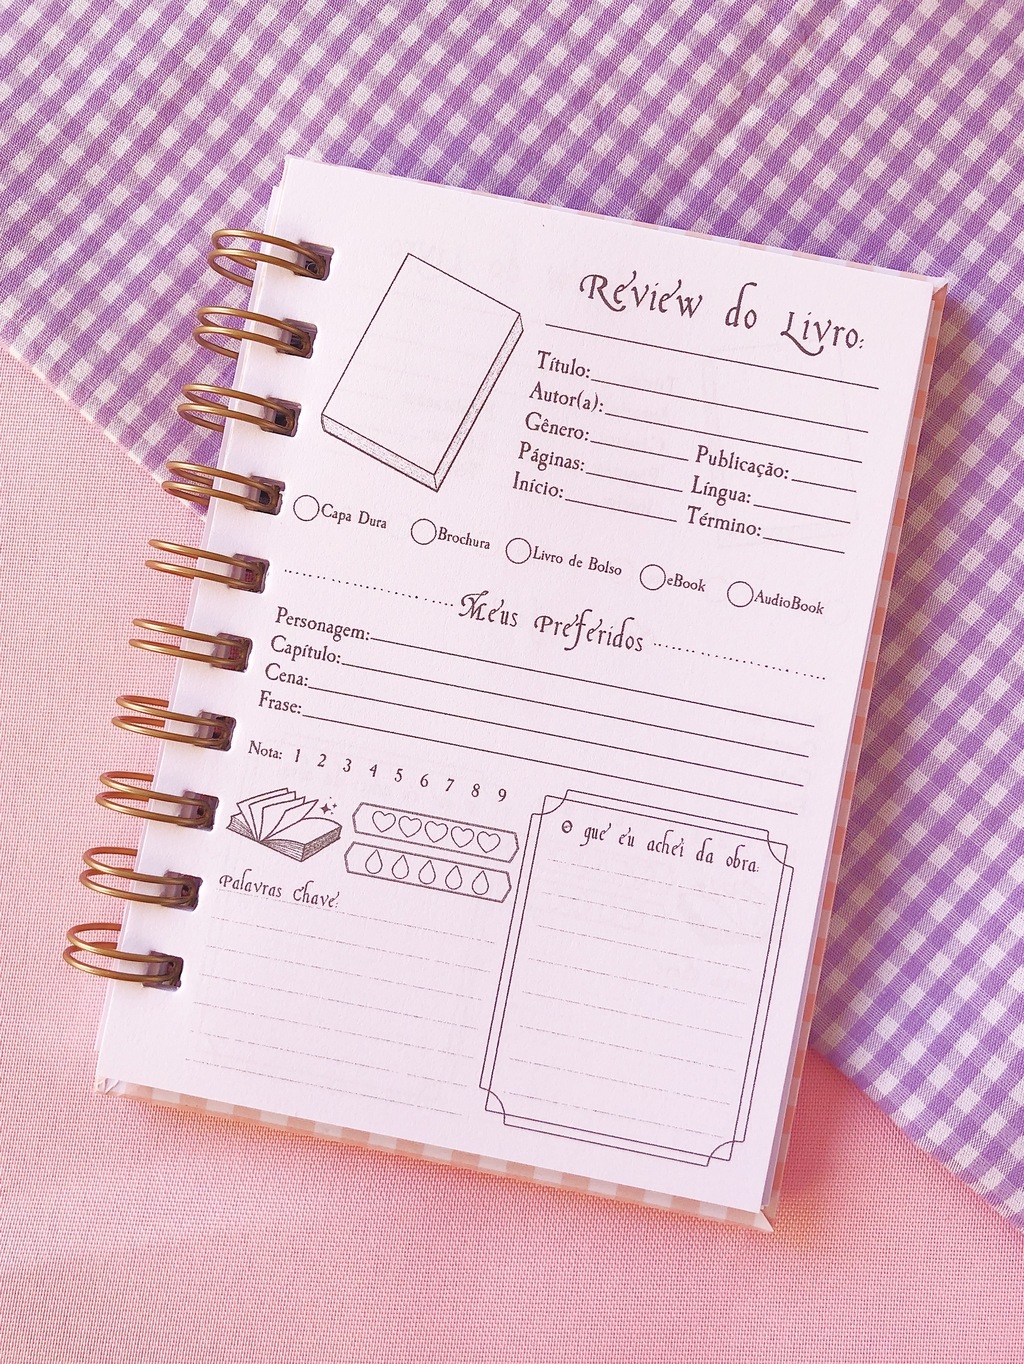 Review do Livro:
Título:
Autor(a):
Gênero: Publicação:
Páginas: Língua:
Início: Término:
Capa Dura Brochura Livro de Bolso eBook AudioBook
Meus Preferidos
Personagem:
Capítulo:
Cena:
Frase:
Nota: 1 2 3 4 5 6 7 8 9
O que eu achei da obra:
Palavras Chave: